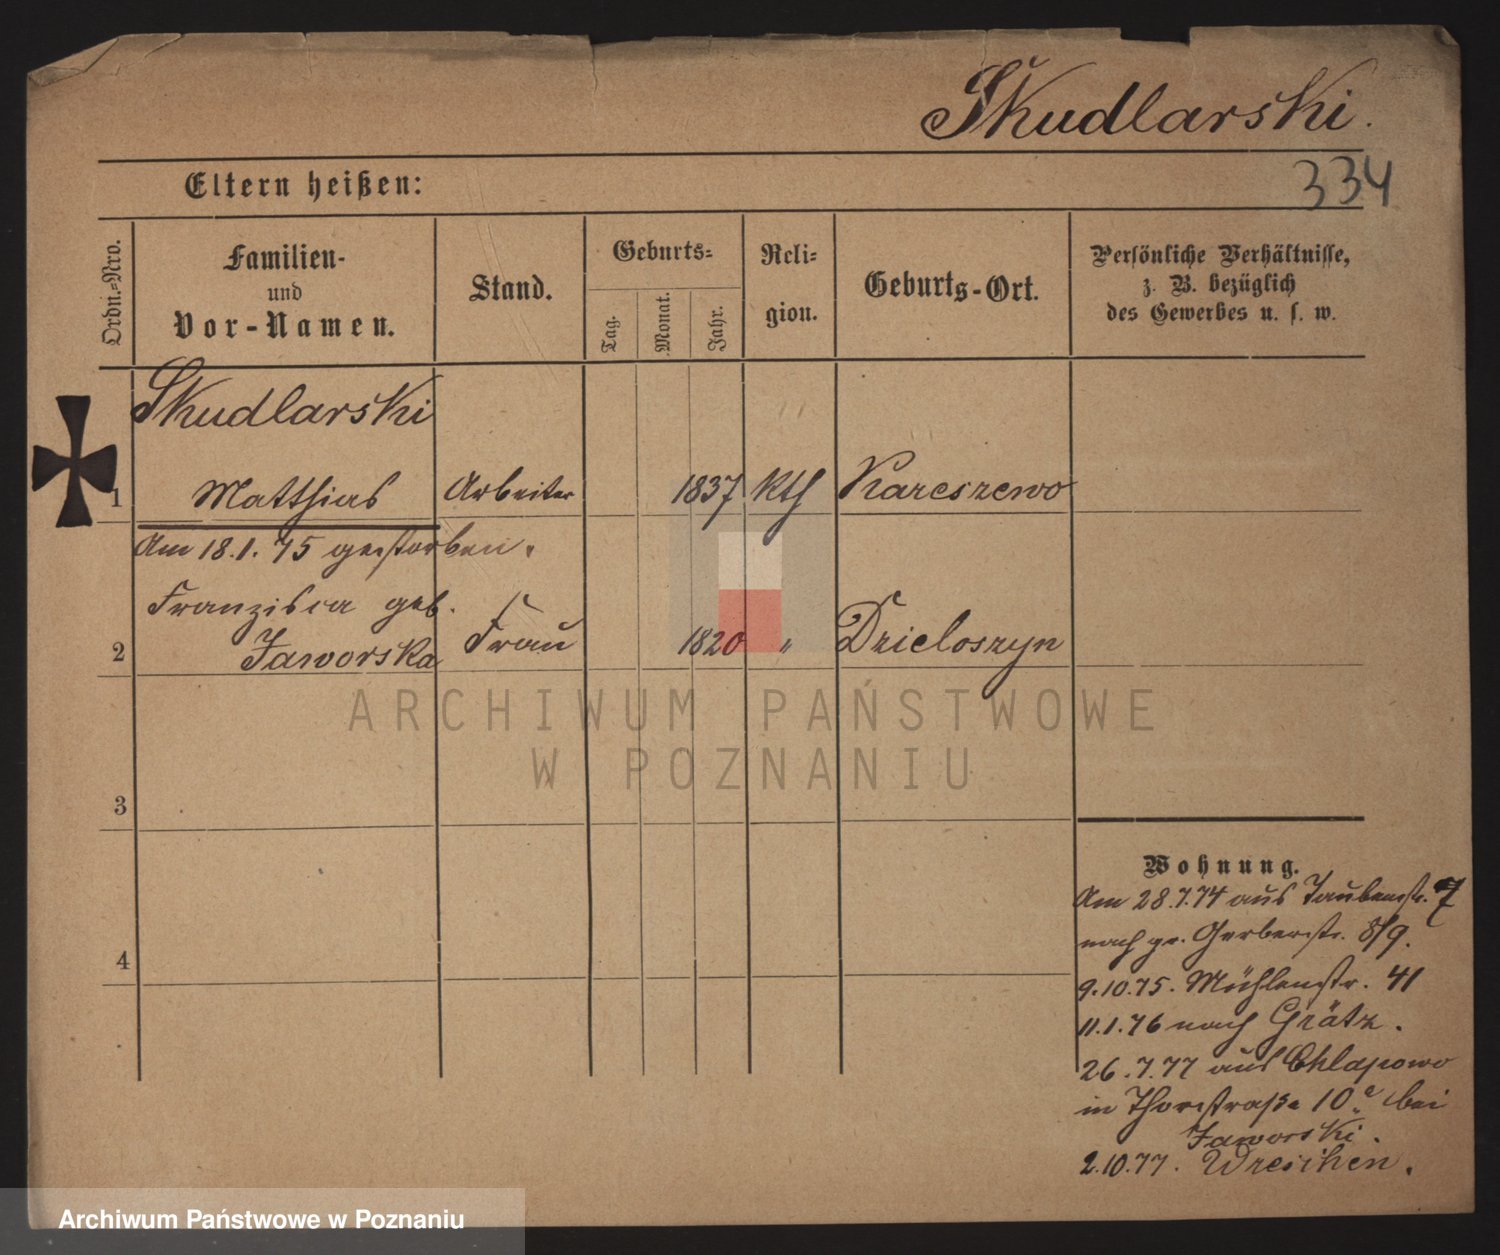 Skudlarski.
334
Eltern heißen:
Ordn.=Nro.
Familien-
und
Vor-Namen.
Stand.
Geburts=
Tag.
Monat.
Jahr.
Reli=
gion.
Geburts-Ort.
Persönliche Verhältnisse,
z. B. bezüglich
des Gewerbes u. s. w.
Skudlarski
1 Matthias Arbeiter 1837 kth Kareszewo
Am 18.1.75 gestorben.
Franzisca geb.
2 Jaworska Frau 1820 " Dzieloszyn
3
4
Wohnung.
Am 28.7.74 aus Taubenstr. 7
nach gr. Gerberstr. 8/9.
9.10.75. Mühlenstr. 41
11.1.76 nach Grätz.
26.7.77 aus Chlapowo
in Thorstraße 10a bei
Jaworski.
2.10.77. Wreschen.
ARCHIWUM PAŃSTWOWE
W POZNANIU
Archiwum Państwowe w Poznaniu